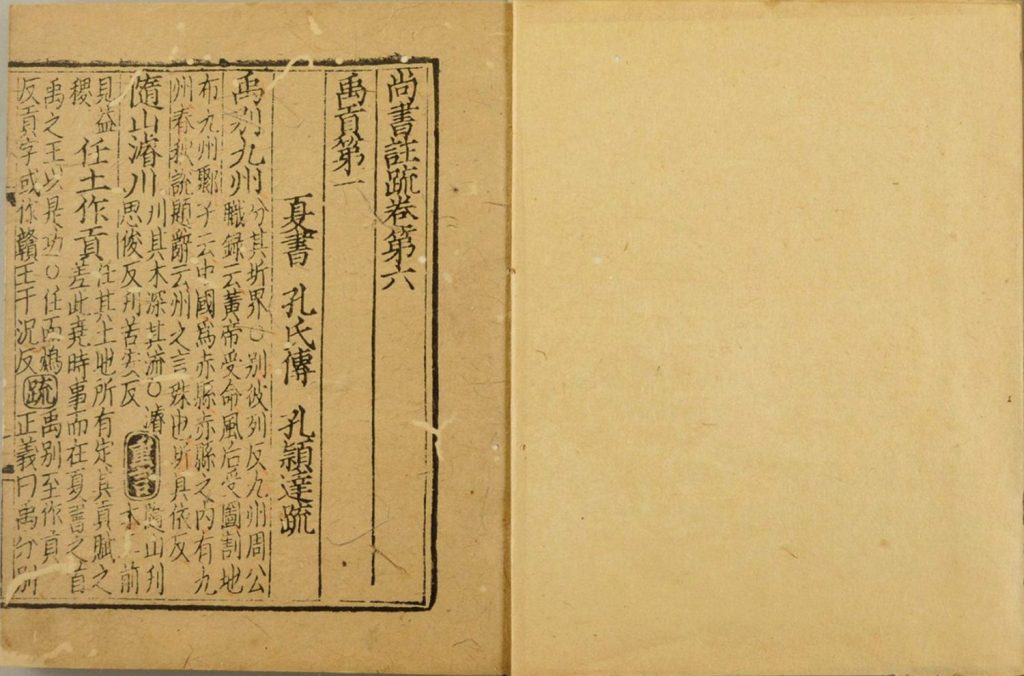 尚書註疏卷第六
禹貢第一
夏書 孔氏傳 孔頴達疏
禹别九州分其圻界○别彼列反九州周公
職録云黃帝受命風后受圖割地
布九州鄹子云中國爲赤縣赤縣之內有九
州春秋說題辭云州之言殊也圻具依反
隨山濬川刊其木深其流○濬
思俊反刊苦安反
重言
隨山刊
木 前
見益
稷
任土作貢任其土地所有定其貢賦之
差此堯時事而在夏書之首
禹之王以是功○任而鴆
反貢字或作贑王于况反
疏
禹别至作貢
正義曰禹分别